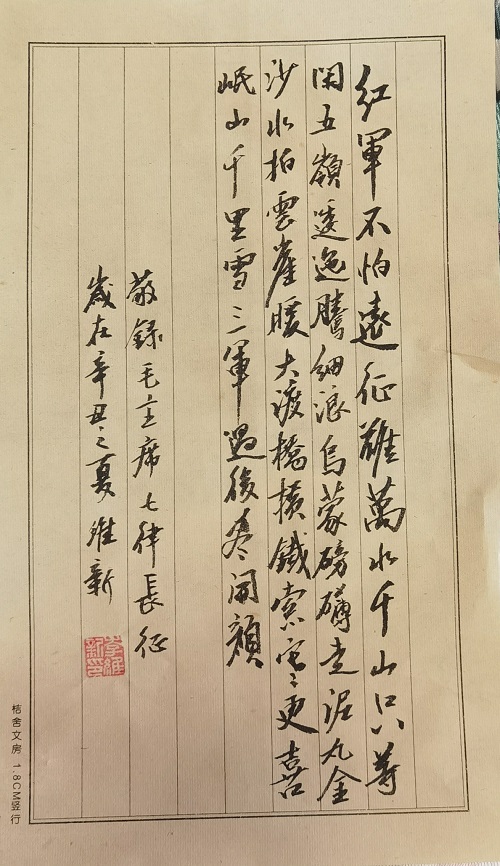 紅軍不怕遠征難萬水千山只等
閑五嶺逶迤騰細浪烏蒙磅礴走泥丸金
沙水拍雲崖暖大渡橋橫鐵索寒更喜
岷山千里雪三軍過後盡開顏
敬錄毛主席七律長征
歲在辛丑之夏維新
李維新印
桔舍文房 1.8CM竖行